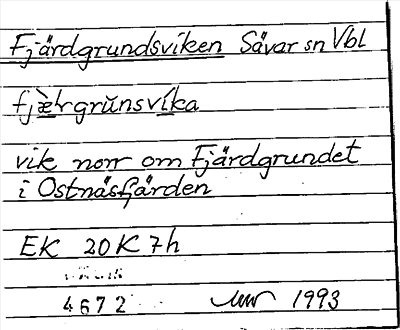 Fjärdgrundsviken Sävar sn Vbl
fjæ̀rgrŭnsvíka
vik norr om Fjärdgrundet
i Ostnäsfjärden
EK 20K 7h
4672 1993